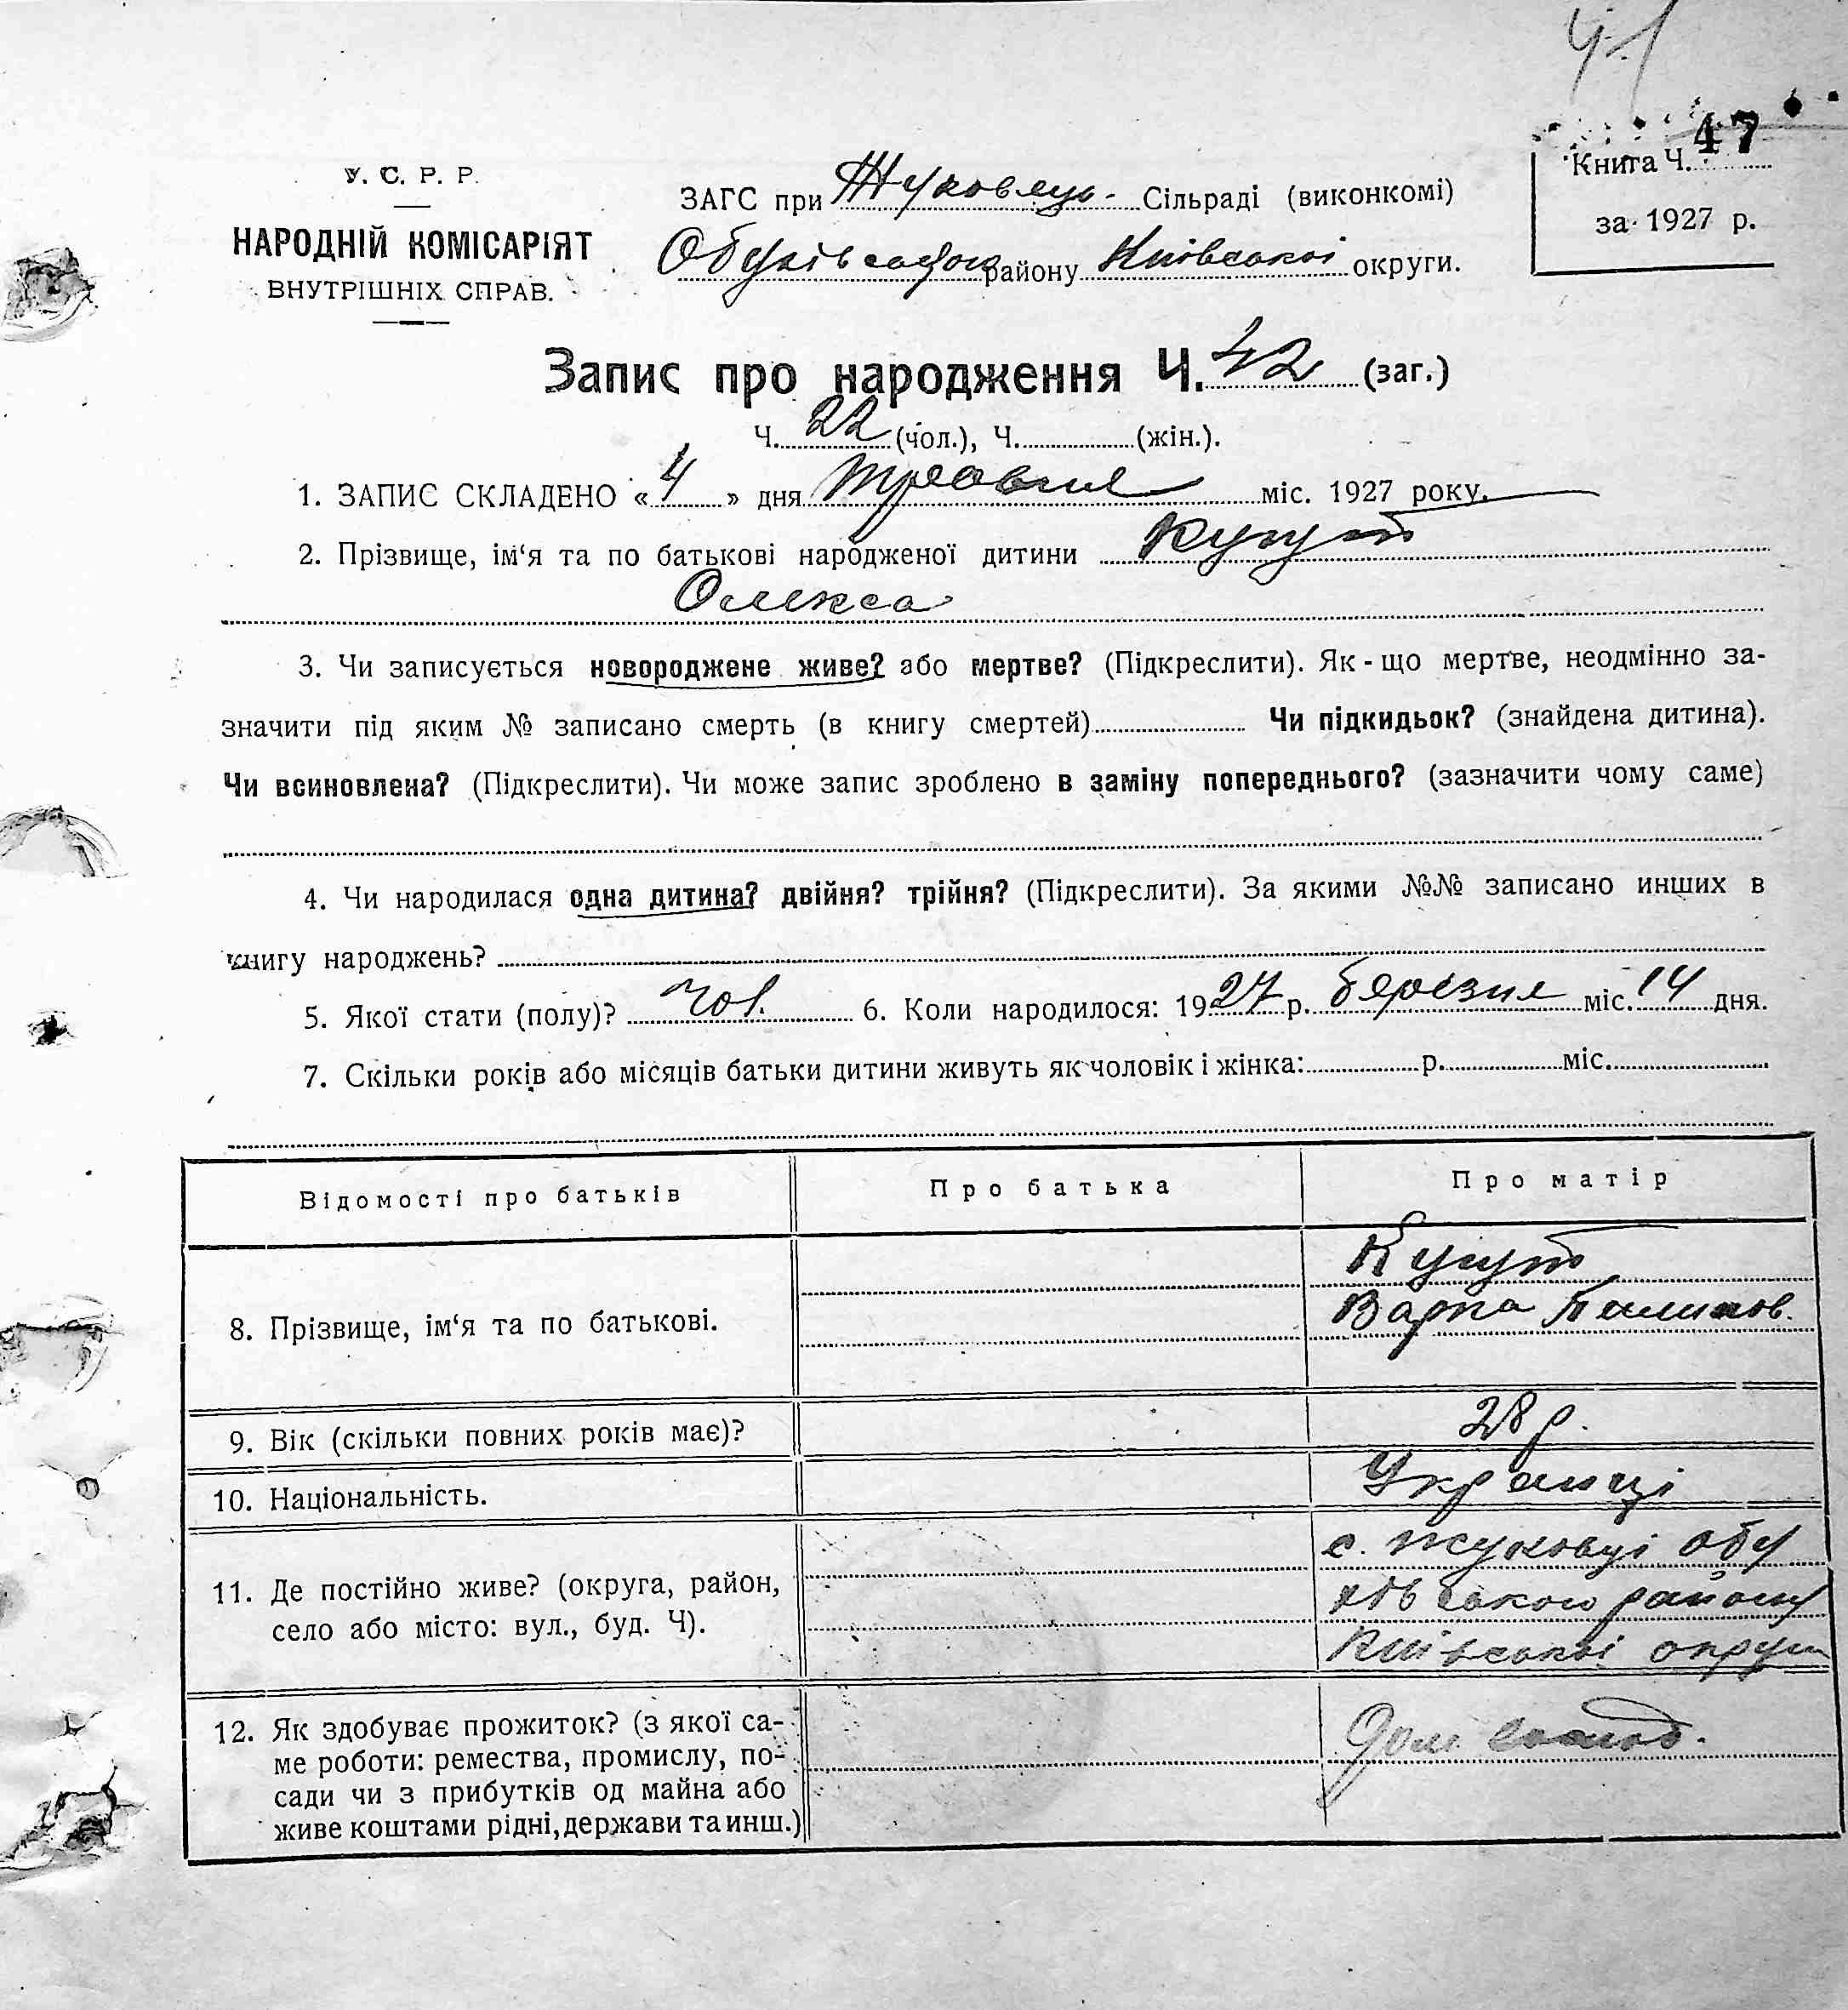 Ч-1
47
Книга Ч.
за 1927 р.
У. С. Р. Р.
НАРОДНІЙ КОМІСАРІЯТ
ВНУТРІШНІХ СПРАВ.
ЗАГС при Жуковець. Сільраді (виконкомі)
району Київської округи.
Запис про народження Ч. 42 (заг.)
Ч. 22 (чол.), Ч. (жін.).
1. ЗАПИС СКЛАДЕНО « 4 » дня травня міс. 1927 року.
2. Прізвище, ім‘я та по батькові народженої дитини Кугут
Олекса
3. Чи записується новороджене живе? або мертве? (Підкреслити). Як-що мертве, неодмінно за-
значити під яким № записано смерть (в книгу смертей) Чи підкидьок? (знайдена дитина).
Чи всиновлена? (Підкреслити). Чи може запис зроблено в заміну попереднього? (зазначити чому саме)
4. Чи народилася одна дитина? двійня? трійня? (Підкреслити). За якими №№ записано инших в
книгу народжень?
5. Якої стати (полу)? чол. 6. Коли народилося: 1927 р. березня міс. 14 дня.
7. Скільки років або місяців батьки дитини живуть як чоловік і жінка: р. міс.
Відомості про батьків Про батька Про матір
8. Прізвище, ім‘я та по батькові. Кугут
Варка
9. Вік (скільки повних років має)? 28 р.
10. Національність. Українці
11. Де постійно живе? (округа, район,
село або місто: вул., буд. Ч).
с. Жуковці Обу
хівського району
Київської округи
12. Як здобуває прожиток? (з якої са-
ме роботи: ремества, промислу, по-
сади чи з прибутків од майна або
живе коштами рідні, держави та инш.)
Дом. господ.